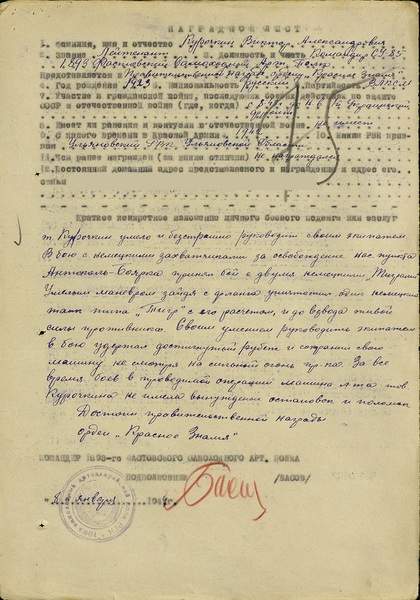 НАГРАДНОЙ ЛИСТ
1. Фамилия, имя и отчество Курочкин Виктор Александрович
2. Звание Лейтенант 3. Должность и часть Командир СУ-85
1893 Фастовский Самоходный Арт. Полк
Представляется к Правительственной награде орден "Красное Знамя"
4. Год рождения 1923 5. Национальность Русский 6. Партийность ВЛКСМ
7. Участие в гражданской войне, последующих боевых действиях по защите
СССР и отечественной войне (где, когда)
8. Имеет ли ранения и контузии в отечественной войне. Не имеет
9. С какого времени в Красной Армии 1942 10. Каким РВК призван
Ульяновский ГВК Ульяновской области
11. Чем ранее награжден (за какие отличия) Не награждался
12. Постоянный домашний адрес представляемого к награждению и адрес его
семьи
15
Краткое конкретное изложение личного боевого подвига или заслуг
т. Курочкин умело и бесстрашно руководит своим экипажем
В бою с немецкими захватчиками за освобождение нас. пункта
Антополь-Боярка принял бой с двумя немецкими "Тиграми"
Умелым маневром зайдя с фланга уничтожил один немецкий
танк типа "Тигр" с его расчетом, и до взвода живой
силы противника. Своим умением руководить экипажем
в бою удержал достигнутый рубеж и сохранил свою
машину не смотря на сильный огонь пр-ка. За все
время боев в проводимой операции машина л-та тов.
Курочкина не имела вынужденных остановок и поломок
Достоин правительственной награды
орден "Красное Знамя"
КОМАНДИР 1893-го ФАСТОВСКОГО САМОХОДНОГО АРТ. ПОЛКА
ПОДПОЛКОВНИК Басов /БАСОВ/
января 1944г.